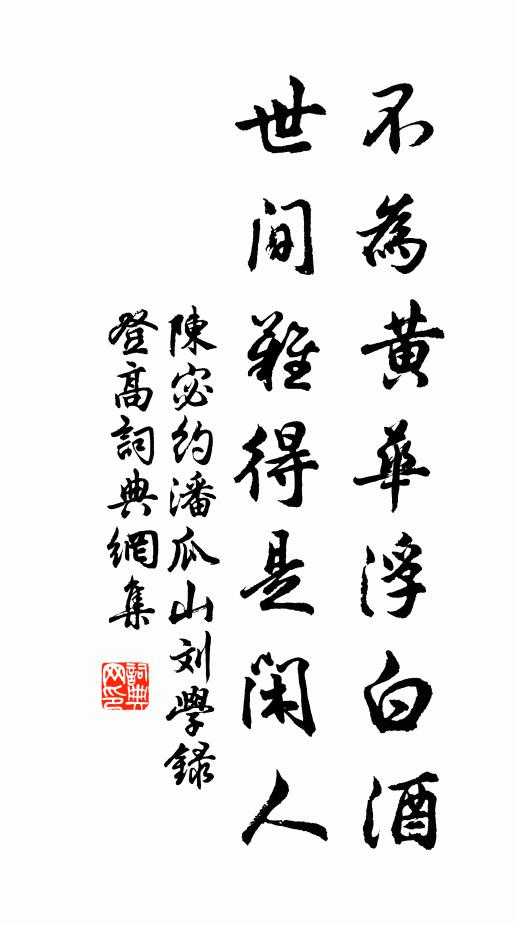 不為黃華浮白酒
世間難得是閑人
陳宓約潘瓜山刘學録
登高詞典網集
詞典網印